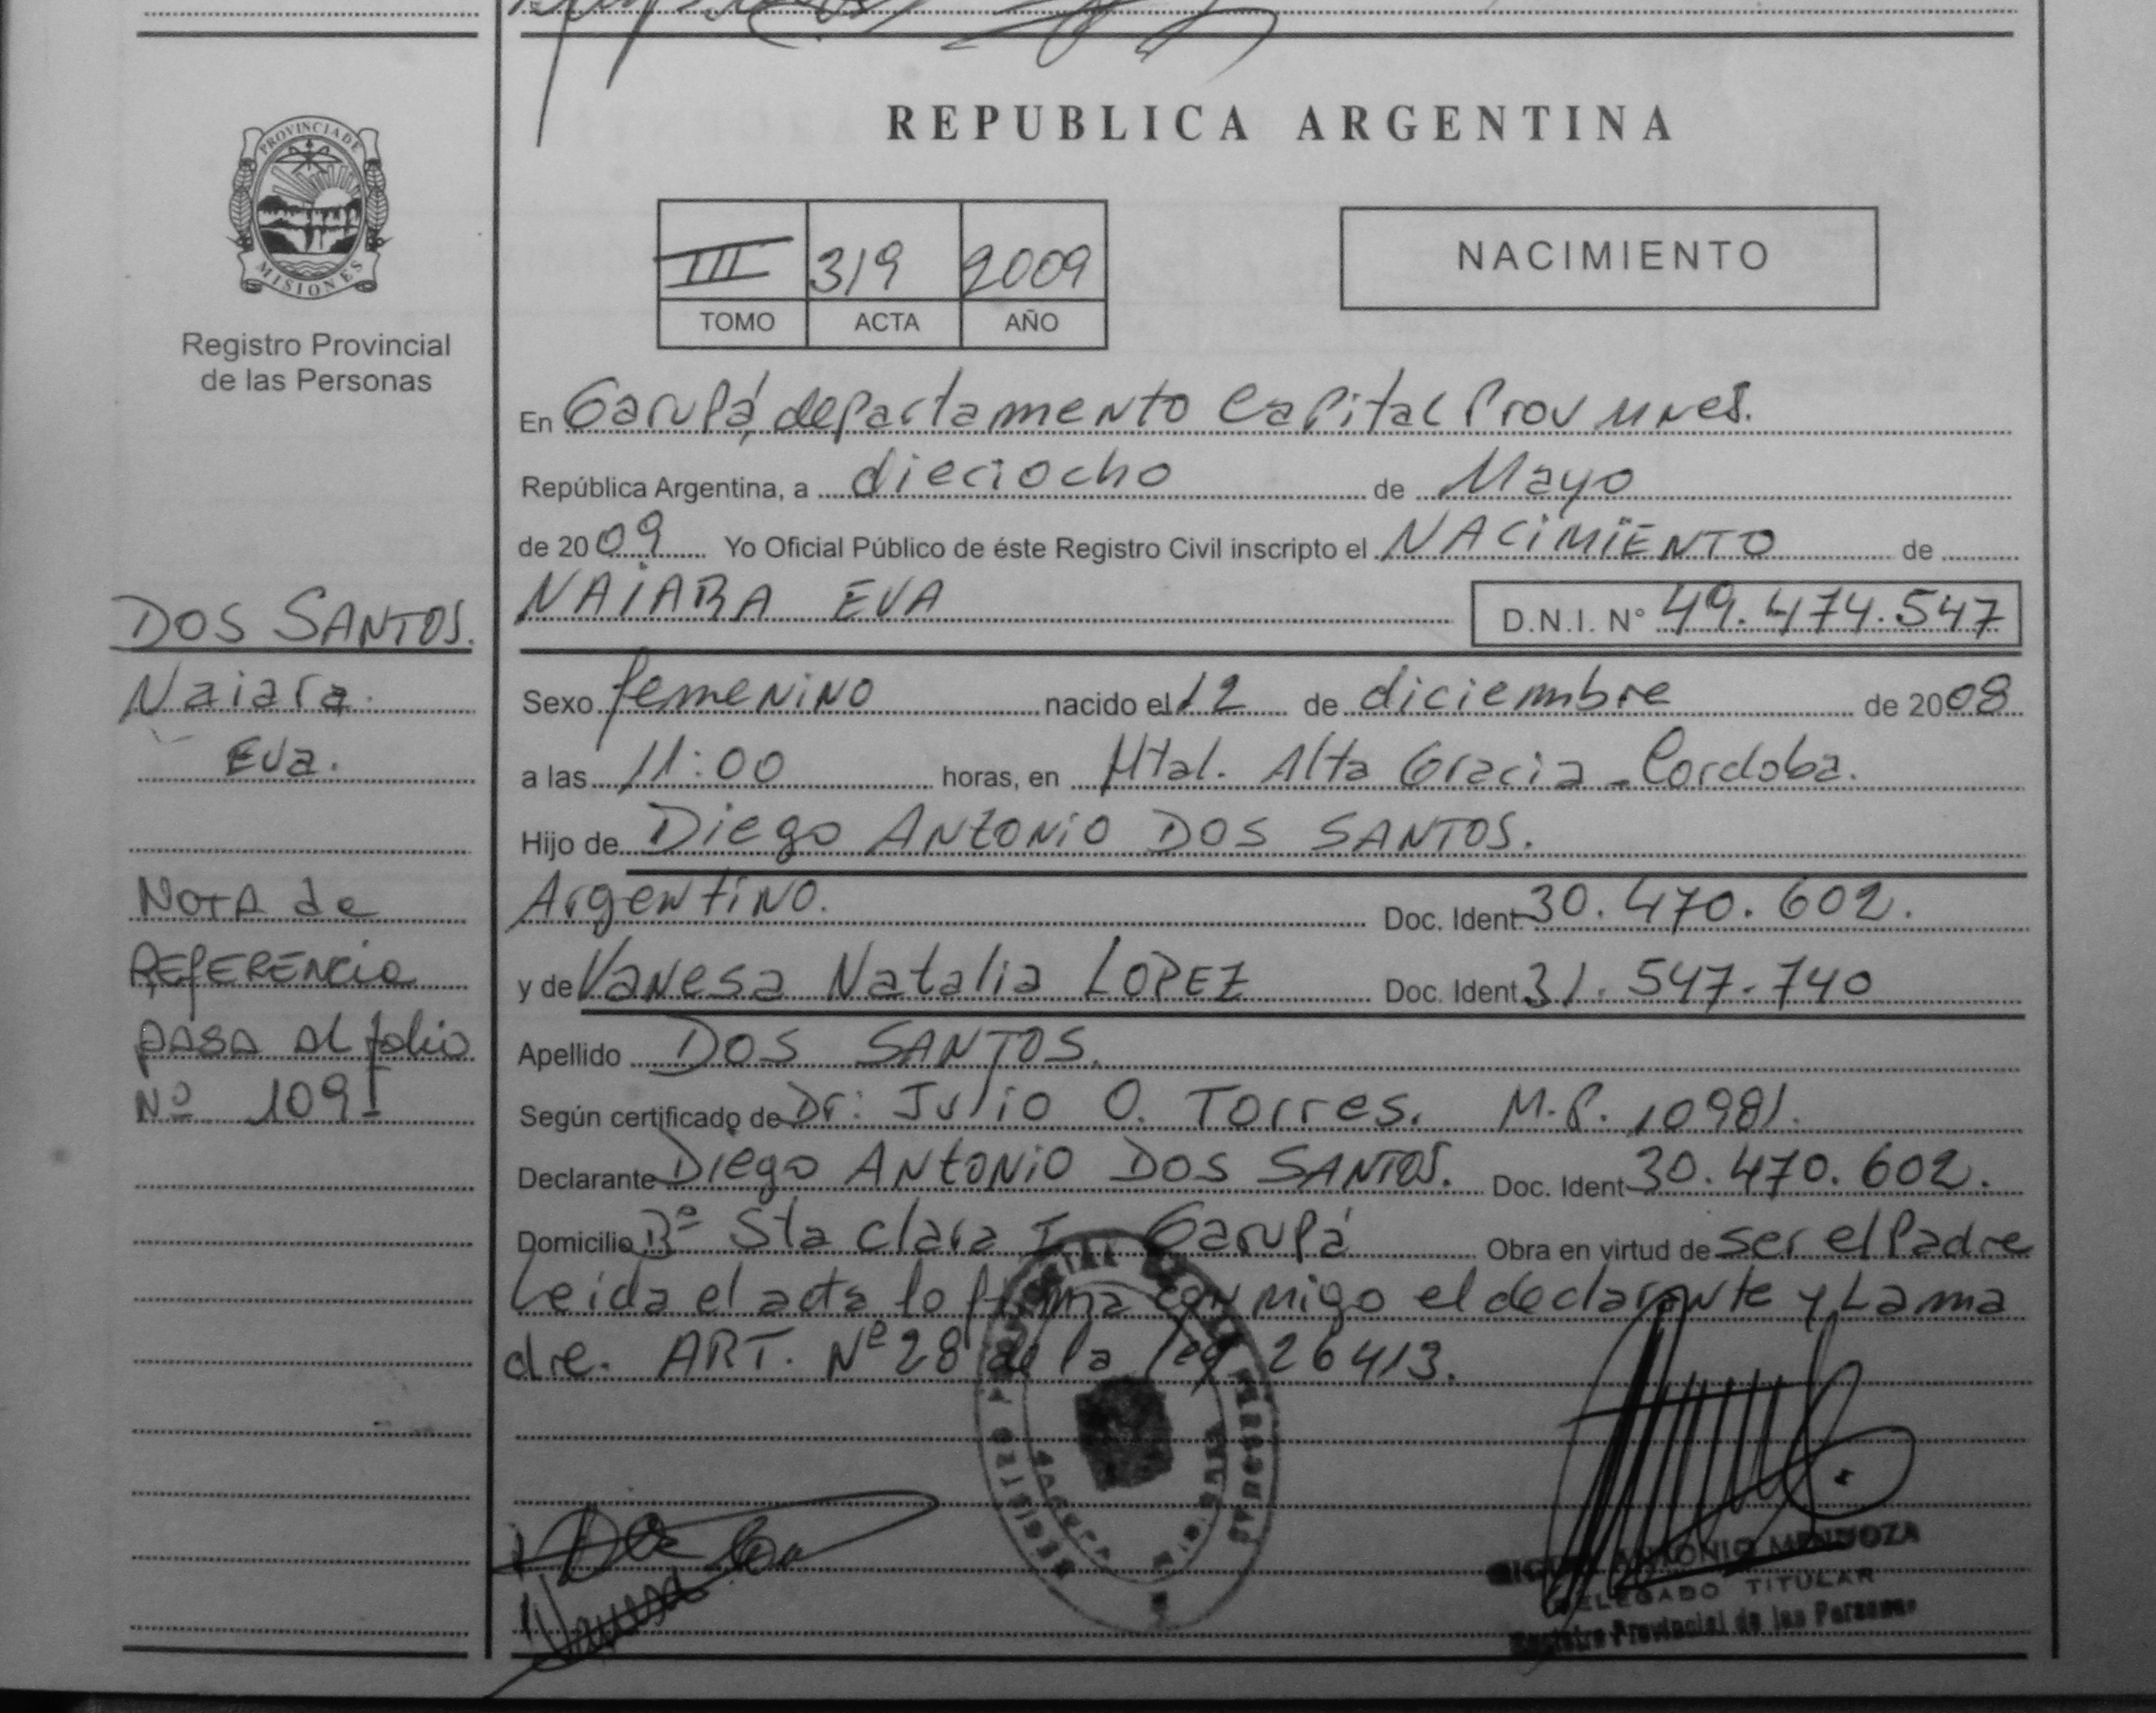 PROVINCIA DE
MISIONES
Registro Provincial
de las Personas
DOS SANTOS.
Naiara.
Eva.
NOTA de
REFERENCIA
PASA AL folio
Nº 109
REPUBLICA ARGENTINA
III 319 2009
TOMO ACTA AÑO
NACIMIENTO
En Garupá, departamento Capital Prov Mnes.
República Argentina, a dieciocho de Mayo
de 2009 Yo Oficial Público de éste Registro Civil inscripto el NACIMIENTO de
NAIARA EVA D.N.I. Nº 49.474.547
Sexo femenino nacido el 12 de diciembre de 2008
a las 11:00 horas, en Htal. Alta Gracia - Cordoba.
Hijo de Diego ANTONIO DOS SANTOS.
Argentino. Doc. Ident. 30.470.602.
y de Vanesa Natalia LOPEZ Doc. Ident 31.547.740
Apellido DOS SANTOS.
Según certificado de Dr: Julio O. Torres. M.P. 10981.
Declarante Diego ANTONIO DOS SANTOS. Doc. Ident 30.470.602.
Domicilio Bº Sta clara I Garupá Obra en virtud de ser el Padre
Leida el acta lo firma conmigo el declarante y La ma
dre. ART. Nº 28 de la ley 26413.
Vanesa
ANTONIO MENDOZA
DELEGADO TITULAR
Registro Provincial de las Personas